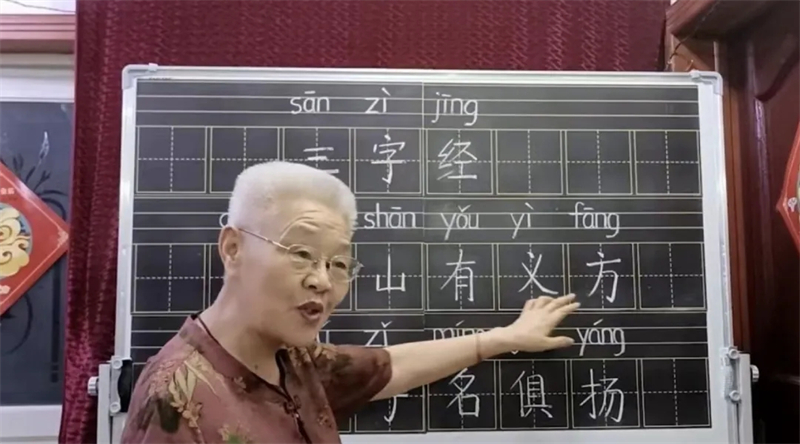 sān zì jīng
三字经
shān yǒu yì fāng
山有义方
zǐ yáng
名俱扬